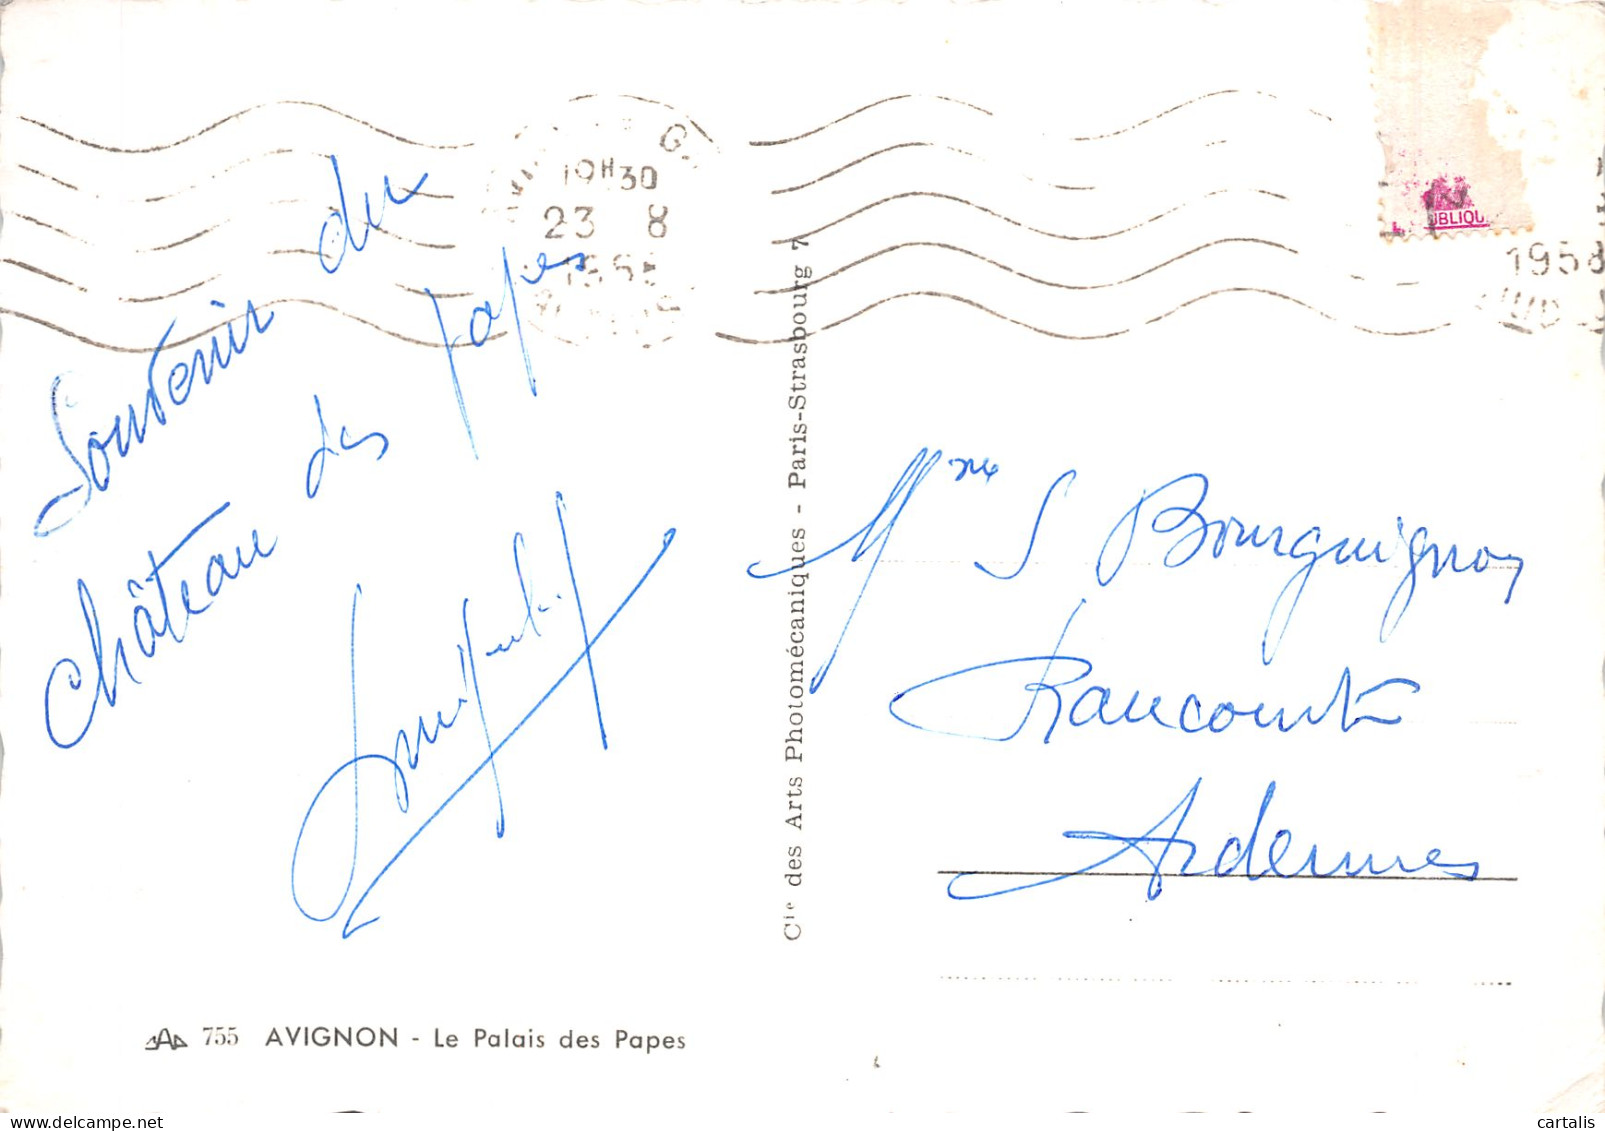 19H30
23 8
1958
UBLIQU
1958
Souvenir du
château des papes
Cie des Arts Photomécaniques - Paris-Strasbourg 7
Mme S Bourguignon
Raucourt
Ardennes
755 AVIGNON - Le Palais des Papes
cartalis